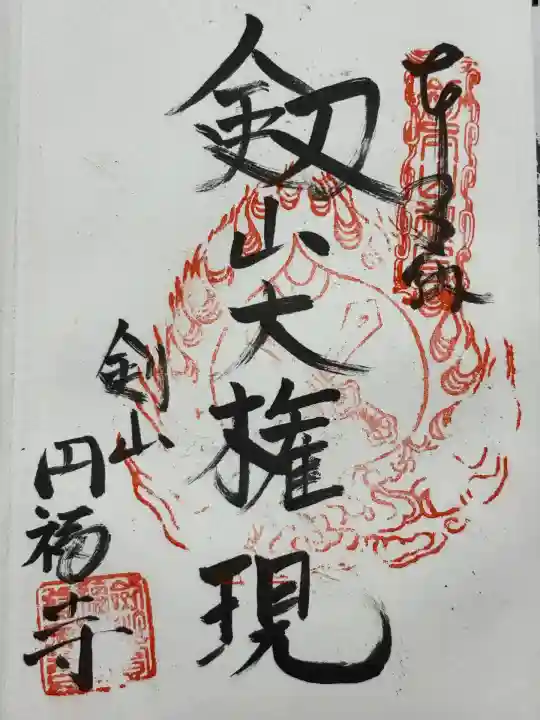 奉拝
劔山大権現
剣山
円福寺